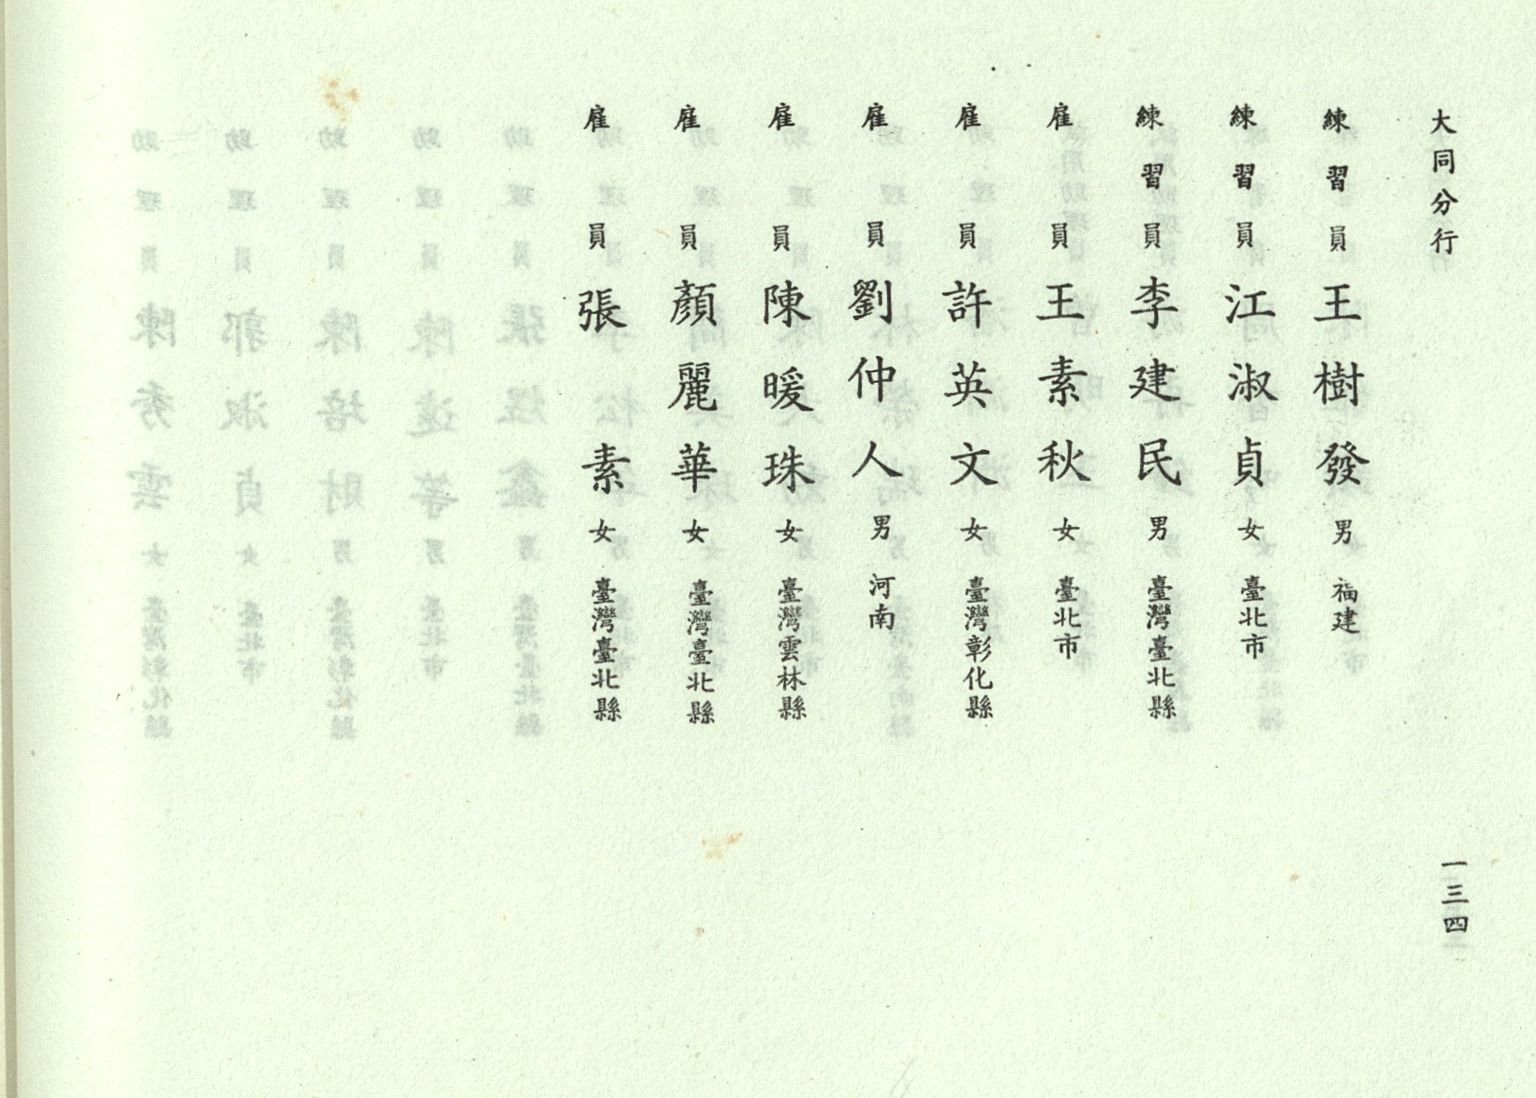 大同分行
練習員 王樹發 男 福建
練習員 江淑貞 女 臺北市
練習員 李建民 男 臺灣臺北縣
雇員 王素秋 女 臺北市
雇員 許英文 女 臺灣彰化縣
雇員 劉仲人 男 河南
雇員 陳暖珠 女 臺灣雲林縣
雇員 顏麗華 女 臺灣臺北縣
雇員 張素 女 臺灣臺北縣
一三四